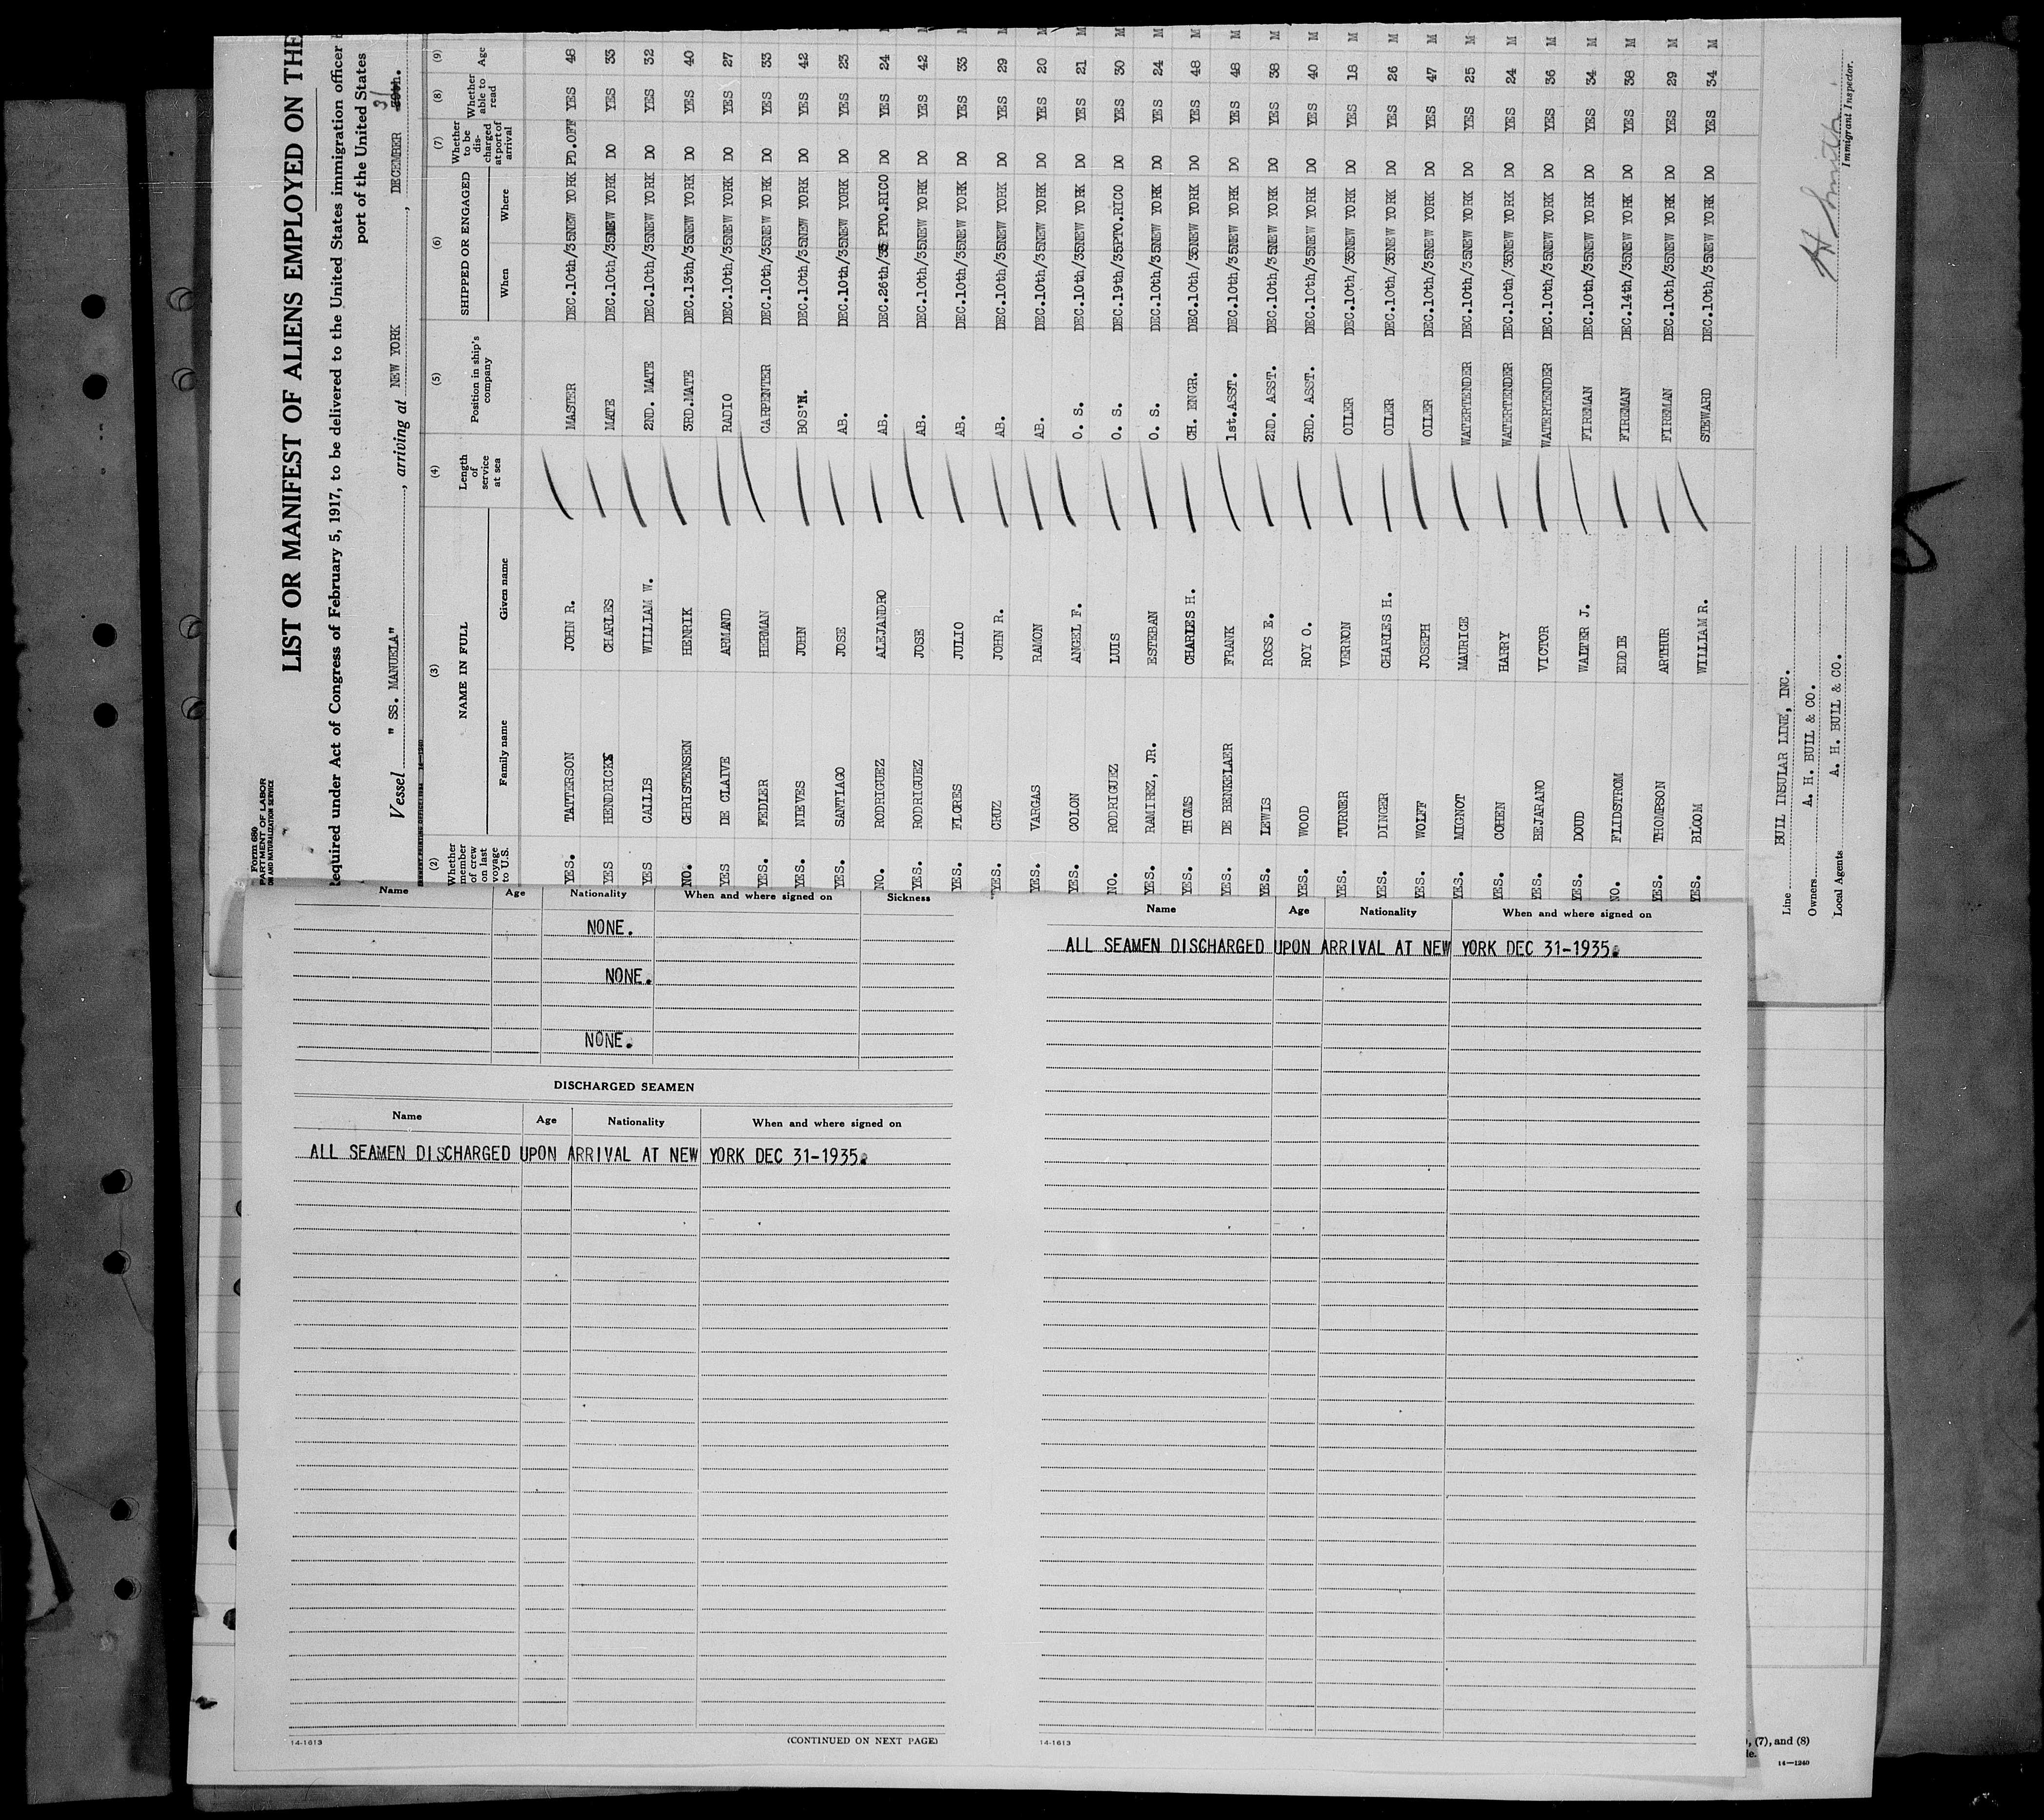 Form 680
PARTMENT OF LABOR
ON AND NATURALIZATION SERVICE
LIST OR MANIFEST OF ALIENS EMPLOYED ON THE
equired under Act of Congress of February 5, 1917, to be delivered to the United States immigration officer
port of the United States
Vessel " SS. MANUELA" , arriving at NEW YORK , DECEMBER 31
(2) (3) (4) (5) (6) (7) (8) (9)
Whether member of crew on last voyage to U.S. NAME IN FULL Family name Given name Length of service at sea Position in ship's company SHIPPED OR ENGAGED When Where Whether to be discharged at port of arrival Whether able to read Age
YES. TATTERSON JOHN R. MASTER DEC.10th/35 NEW YORK PD.OFF YES 48
YES HENDRICKS CHARLES MATE DEC.10th/35 NEW YORK DO YES 33 M
YES CALLIS WILLIAM W. 2ND. MATE DEC.10th/35 NEW YORK DO YES 32 M
NO. CHRISTENSEN HENRIK 3RD.MATE DEC.13th/35 NEW YORK DO YES 40 M
YES DE CLAIVE ARMAND RADIO DEC.10th/35 NEW YORK DO YES 27 M
YES. FEDLER HERMAN CARPENTER DEC.10th/35 NEW YORK DO YES 33 M
YES. NIEVES JOHN BOS'N. DEC.10th/35 NEW YORK DO YES 42 M
YES. SANTIAGO JOSE AB. DEC.10th/35 NEW YORK DO YES 23 M
NO. RODRIGUEZ ALEJANDRO AB. DEC.26th/35 PTO.RICO DO YES 24 M
YES. RODRIGUEZ JOSE AB. DEC.10th/35 NEW YORK DO YES 42 M
YES. FLORES JULIO AB. DEC.10th/35 NEW YORK DO YES 33 M
YES. CRUZ JOHN R. AB. DEC.10th/35 NEW YORK DO YES 29 M
YES. VARGAS RAMON AB. DEC.10th/35 NEW YORK DO YES 20 M
YES. COLON ANGEL F. O. S. DEC.10th/35 NEW YORK DO YES 21 M
NO. RODRIGUEZ LUIS O. S. DEC.19th/35 PTO.RICO DO YES 30 M
YES. RAMIREZ, JR. ESTEBAN O. S. DEC.10th/35 NEW YORK DO YES 24 M
YES. THOMS CHARLES H. CH. ENGR. DEC.10th/35 NEW YORK DO YES 48 M
YES. DE BENKELAER FRANK 1st.ASST. DEC.10th/35 NEW YORK DO YES 48 M
YES. LEWIS ROSS E. 2ND. ASST. DEC.10th/35 NEW YORK DO YES 38 M
YES. WOOD ROY O. 3RD. ASST. DEC.10th/35 NEW YORK DO YES 40 M
YES. TURNER VERNON OILER DEC.10th/35 NEW YORK DO YES 18 M
YES. DINGER CHARLES H. OILER DEC.10th/35 NEW YORK DO YES 26 M
YES. WOLFF JOSEPH OILER DEC.10th/35 NEW YORK DO YES 47 M
YES. MIGNOT MAURICE WATERTENDER DEC.10th/35 NEW YORK DO YES 25 M
YES. COHEN HARRY WATERTENDER DEC.10th/35 NEW YORK DO YES 24 M
YES. BEJARANO VICTOR WATERTENDER DEC.10th/35 NEW YORK DO YES 36 M
YES. DOUD WALTER J. FIREMAN DEC.10th/35 NEW YORK DO YES 34 M
NO. FLIDSTROM EDDIE FIREMAN DEC.14th/35 NEW YORK DO YES 38 M
YES. THOMPSON ARTHUR FIREMAN DEC.10th/35 NEW YORK DO YES 29 M
YES. BLOOM WILLIAM R. STEWARD DEC.10th/35 NEW YORK DO YES 34 M
Line BULL INSULAR LINE, INC.
Owners A. H. BULL & CO.
Local Agents A. H. BULL & CO.
H Smith
Immigrant Inspector.
Name Age Nationality When and where signed on Sickness
NONE.
NONE.
NONE.
DISCHARGED SEAMEN
Name Age Nationality When and where signed on
ALL SEAMEN DISCHARGED UPON ARRIVAL AT NEW YORK DEC 31-1935.
14-1613
(CONTINUED ON NEXT PAGE)
Name Age Nationality When and where signed on
ALL SEAMEN DISCHARGED UPON ARRIVAL AT NEW YORK DEC 31-1935.
14-1613
, (7), and (8)
le.
14-1240